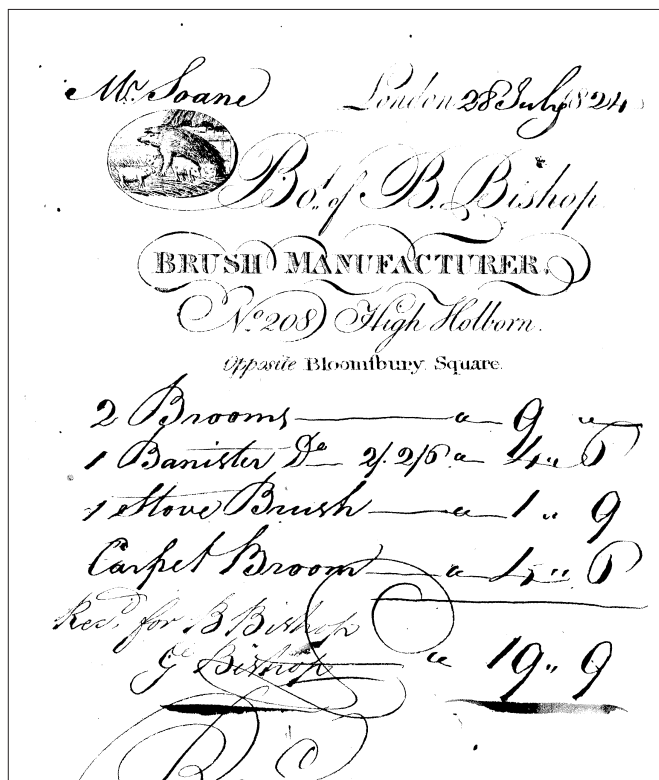 Mr. Soane London 28 July 1824
Bot. of B. Bishop
BRUSH MANUFACTURER.
No. 208 High Holborn.
Opposite Bloomsbury Square.
2 Brooms — a 9 "
1 Banister Do 2/. 2/6 a 4 " 6
1 Stove Brush — a 1 " 9
Carpet Broom — a 4 " 6
Recd. for B Bishop
Bishop — " 19 " 9